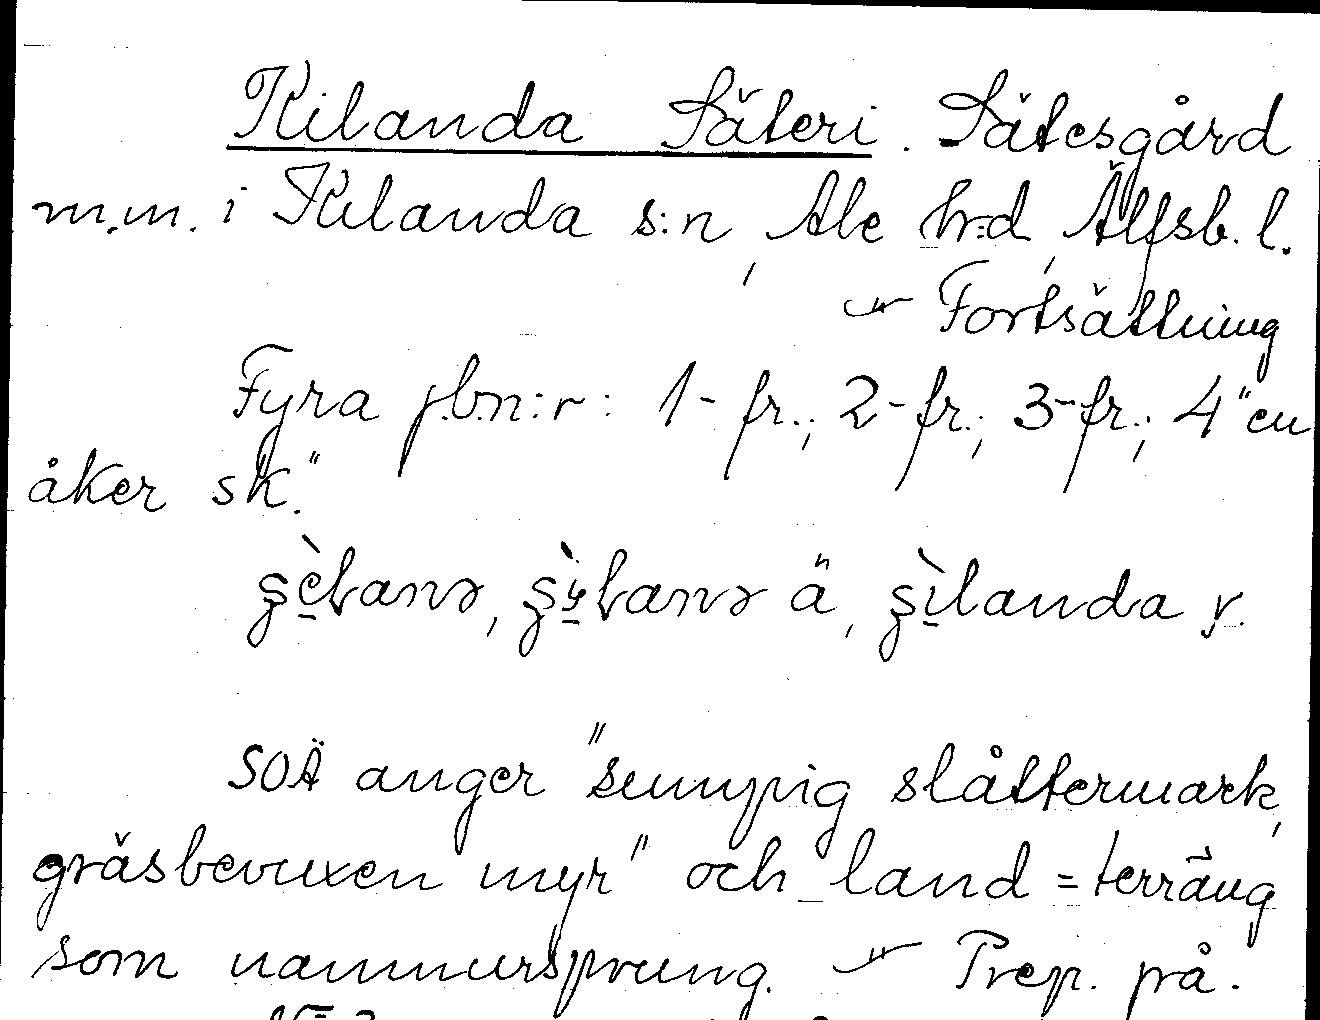 Kilanda Säteri. Sätesgård
m.m. i Kilanda s:n, Ale h:d, Älfsb. l.
Fortsättning
Fyra jbn:r: 1- fr.; 2- fr.; 3- fr.; 4 "en
åker sk."
ä, r.
SOÄ anger "sumpig slåttermark,
gräsbevuxen myr" och land = terräng
som namnursprung. Prep. på.